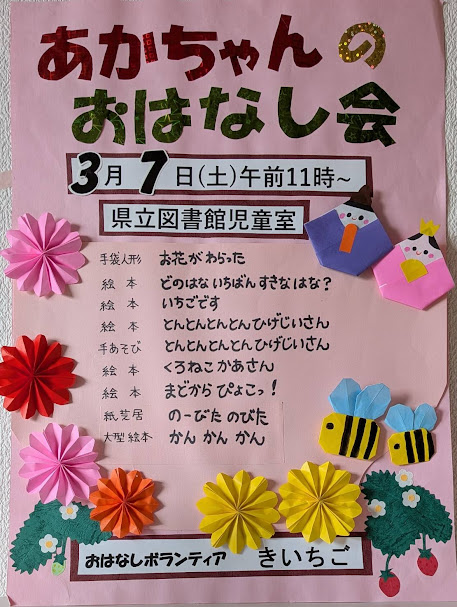 あかちゃんの
おはなし会
3月7日(土)午前11時~
県立図書館児童室
手袋人形 お花がわらった
絵本 どのはないちばんすきなはな?
絵本 いちごです
絵本 とんとんとんとんひげじいさん
手あそび とんとんとんとんひげじいさん
絵本 くろねこかあさん
絵本 まどからぴょこっ!
紙芝居 のーびたのびた
大型絵本 かんかんかん
おはなしボランティア きいちご